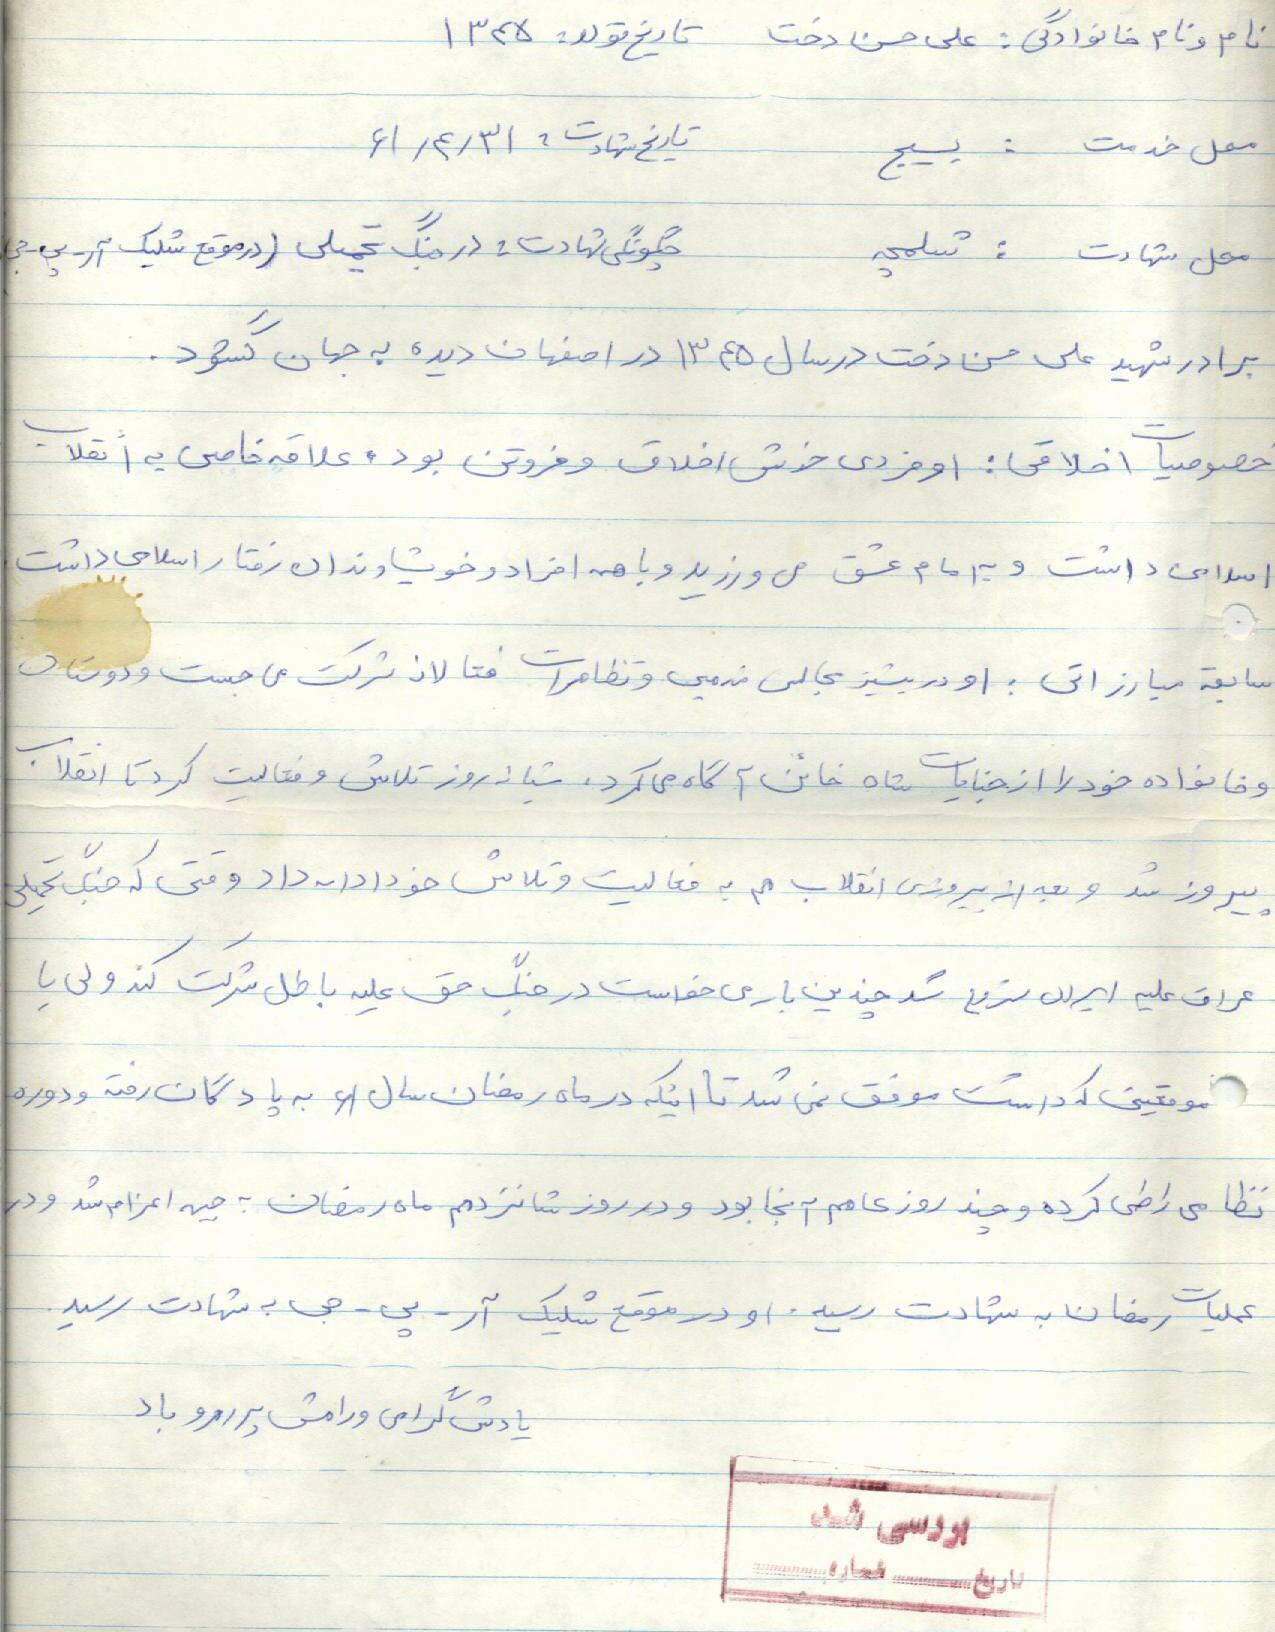 نام و نام خانوادگی : علی حسن دخت تاریخ تولد : ۱۳۴۵
محل خدمت : بسیج تاریخ شهادت : ۶۱/۴/۳۱
محل شهادت : شلمچه چگونگی شهادت : در جنگ تحمیلی (در موقع شلیک آر-پی-جی)
برادر شهید علی حسن دخت در سال ۱۳۴۵ در اصفهان دیده به جهان گشود .
خصوصیات اخلاقی : او فردی خوش اخلاق و فروتن بود ، علاقه خاصی به انقلاب
اسلامی داشت و به امام عشق می ورزید و با همه افراد و خویشاوندان رفتار اسلامی داشت
سابقه مبارزاتی : او در بیشتر مجالس مذهبی و تظاهرات فعالانه شرکت می جست و دوستان
و خانواده خود را از جنایات شاه خائن آگاه می کرد ، شبانه روز تلاش و فعالیت کرد تا انقلاب
پیروز شد و بعد از پیروزی انقلاب هم به فعالیت و تلاش خود ادامه داد وقتی که جنگ تحمیلی
عراق علیه ایران شروع شد چندین بار می خواست در جنگ حق علیه باطل شرکت کند ولی با
موقعیتی که داشت موفق نمی شد تا اینکه در ماه رمضان سال ۶۱ به پادگان رفته و دوره
نظامی را طی کرده و چند روز عاهم آنجا بود و در روز شانزدهم ماه رمضان به جبهه اعزام شد و در
عملیات رمضان به شهادت رسید . او در موقع شلیک آر-پی-جی به شهادت رسید .
یادش گرامی و راهش پر رهرو باد
بررسی شد
تاریخ ............ شماره ............